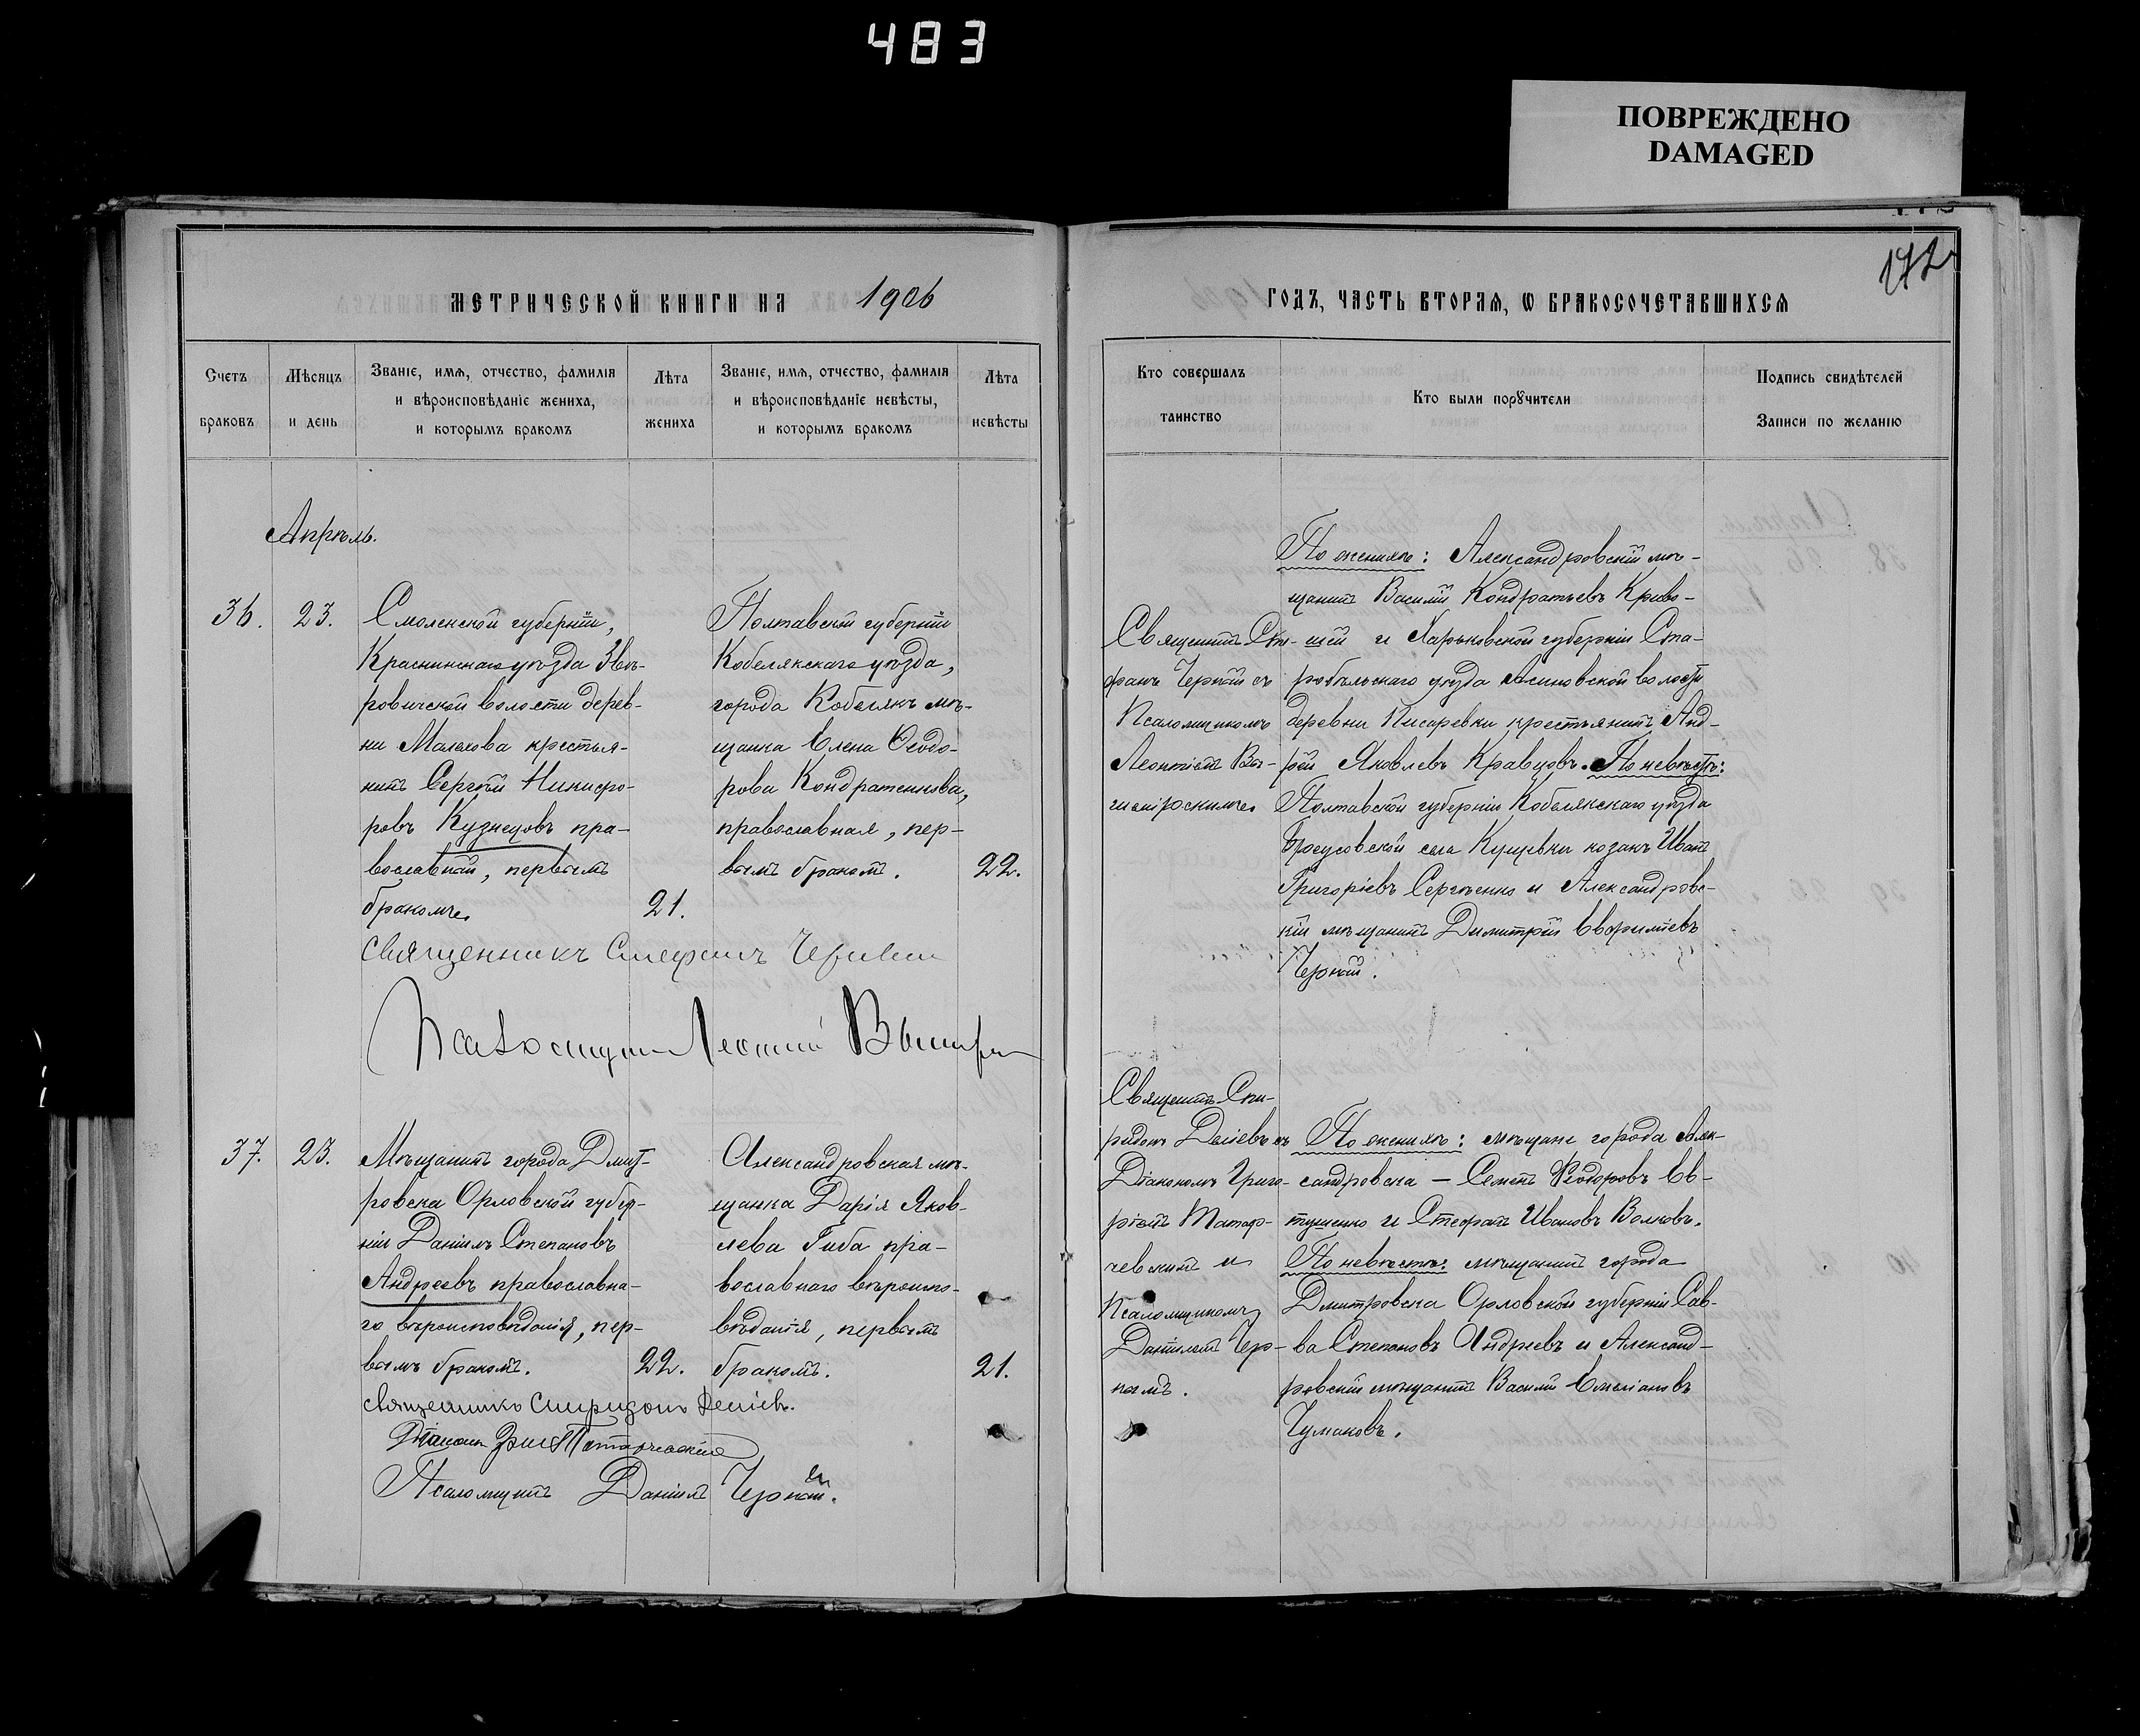 483
ПОВРЕЖДЕНО
DAMAGED
172
МЕТРИЧЕСКОЙ КНИГИ НА 1906
ГОДЪ, ЧАСТЬ ВТОРАЯ, Ѡ БРАКОСОЧЕТАВШИХСЯ
Счетъ
браковъ
Мѣсяцъ
и день
Званіе, имя, отчество, фамилія
и вѣроисповѣданіе жениха,
и которымъ бракомъ
Лѣта
жениха
Званіе, имя, отчество, фамилія
и вѣроисповѣданіе невѣсты,
и которымъ бракомъ
Лѣта
невѣсты
Кто совершалъ
таинство
Кто были порꙋчители
Подпись свидѣтелей
Записи по желанію
Апрѣль.
36.
23.
Смоленской губерніи,
Краснинскаго уѣзда Звѣ-
ровичской волости дерев-
ни Малехова крестья-
нинъ Сергѣй Никифо-
ровъ Кузнецовъ пра-
вославный, первымъ
бракомъ.
21.
Полтавской губерніи
Кобелякскаго уѣзда,
города Кобелякъ мѣ-
щанка Елена Ѳеодо-
рова Кондратенкова,
православная, пер-
вымъ бракомъ.
22.
Священникъ Сте-
фанъ Черный съ
Псаломщикомъ
Леонтіемъ
По женихѣ: Александровскій мѣ-
щанинъ Василій Кондратьевъ Криво-
шей и Харьковской губерніи Ста-
робѣльскаго уѣзда Осиновской волости
деревни Писаревки крестьянинъ Анд-
рей Яковлевъ Кравцовъ. По невѣстѣ:
Полтавской губерніи Кобелякскаго уѣзда
села козакъ Иванъ
Григоріевъ Сергѣенко и Александровс-
кій мѣщанинъ Димитрій Евфиміевъ
Черный.
Священникъ Стефанъ Черный
Псаломщикъ Леонтій
37.
23.
Мѣщанинъ города Дмит-
ровска Орловской губер-
ніи Даніилъ Степановъ
Андреевъ православна-
го вѣроисповѣданія, пер-
вымъ бракомъ.
22.
Александровская мѣ-
щанка Дарія Яков-
лева Гиба пра-
вославнаго вѣроиспо-
вѣданія, первымъ
бракомъ.
21.
Священникъ Спи-
ридонъ съ
Діакономъ Григо-
ріемъ Татар-
чевскимъ и
Псаломщикомъ
Даніиломъ Чер-
нымъ.
По женихѣ: мѣщане города Алек-
сандровска — Семенъ Ѳеодоровъ Ев-
тушенко и Стефанъ Ивановъ Волковъ.
По невѣстѣ: мѣщанинъ города
Дмитровска Орловской губерніи Сав-
ва Степановъ Андреевъ и Александ-
ровскій мѣщанинъ Василій Емеліановъ
Чумаковъ.
Священникъ Спиридонъ
Діаконъ Григ. Татарчевскій
Псаломщикъ Даніилъ Черный.